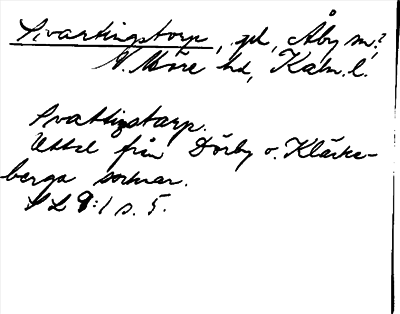 Svartingstorp, gd, Åby sn?,
N. Möre hd, Kalm. l.
Svattigstarp.
Uttal från Dörby o. Kläcke-
berga socknar.
SL 9:1 s. 5.